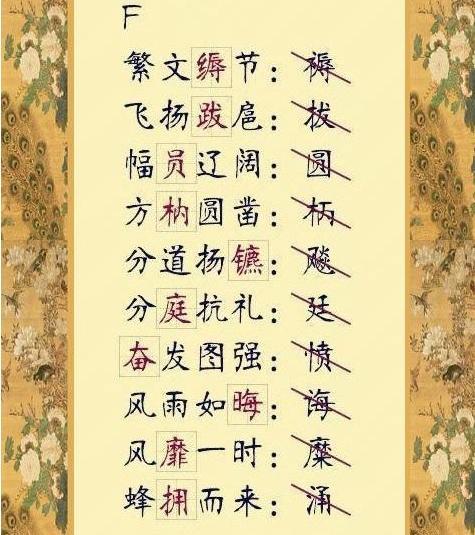 F
繁文缛节：褥
飞扬跋扈：拔
幅员辽阔：圆
方枘圆凿：柄
分道扬镳：飚
分庭抗礼：廷
奋发图强：愤
风雨如晦：诲
风靡一时：糜
蜂拥而来：涌